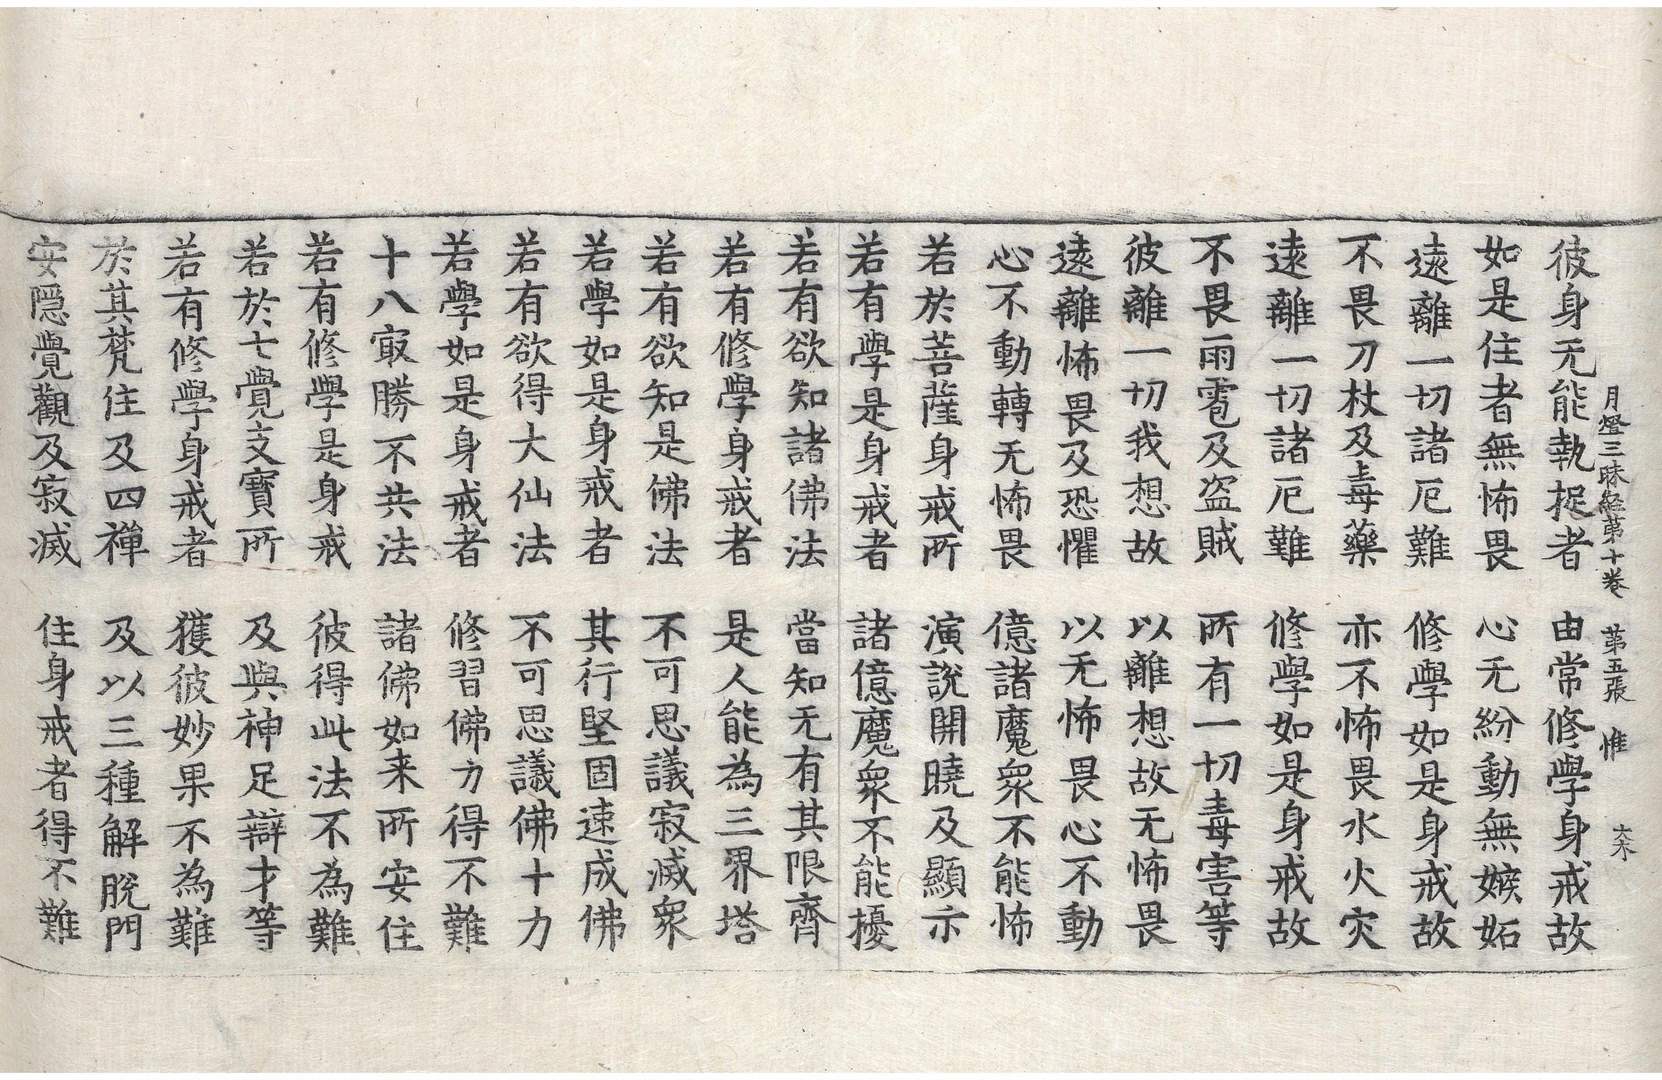 月燈三昧経第十巻 第五張 惟
彼身无能執捉者 由常修學身戒故
如是住者無怖畏 心无紛動無嫉妬
遠離一切諸厄難 修學如是身戒故
不畏刀杖及毒藥 亦不怖畏水火灾
遠離一切諸厄難 修學如是身戒故
不畏雨雹及盗賊 所有一切毒害等
彼離一切我想故 以離想故无怖畏
遠離怖畏及恐懼 以无怖畏心不動
心不動轉无怖畏 億諸魔衆不能怖
若於菩薩身戒所 演説開曉及顯示
若有學是身戒者 諸億魔衆不能擾
若有欲知諸佛法 當知无有其限齊
若有修學身戒者 是人能為三界塔
若有欲知是佛法 不可思議寂滅衆
若學如是身戒者 其行堅固速成佛
若有欲得大仙法 不可思議佛十力
若學如是身戒者 修習佛力得不難
十八㝡勝不共法 諸佛如来所安住
若有修學是身戒 彼得此法不為難
若於七覺支寶所 及與神足辯才等
若有修學身戒者 獲彼妙果不為難
於其梵住及四禪 及以三種解脫門
安隱覺觀及寂滅 住身戒者得不難